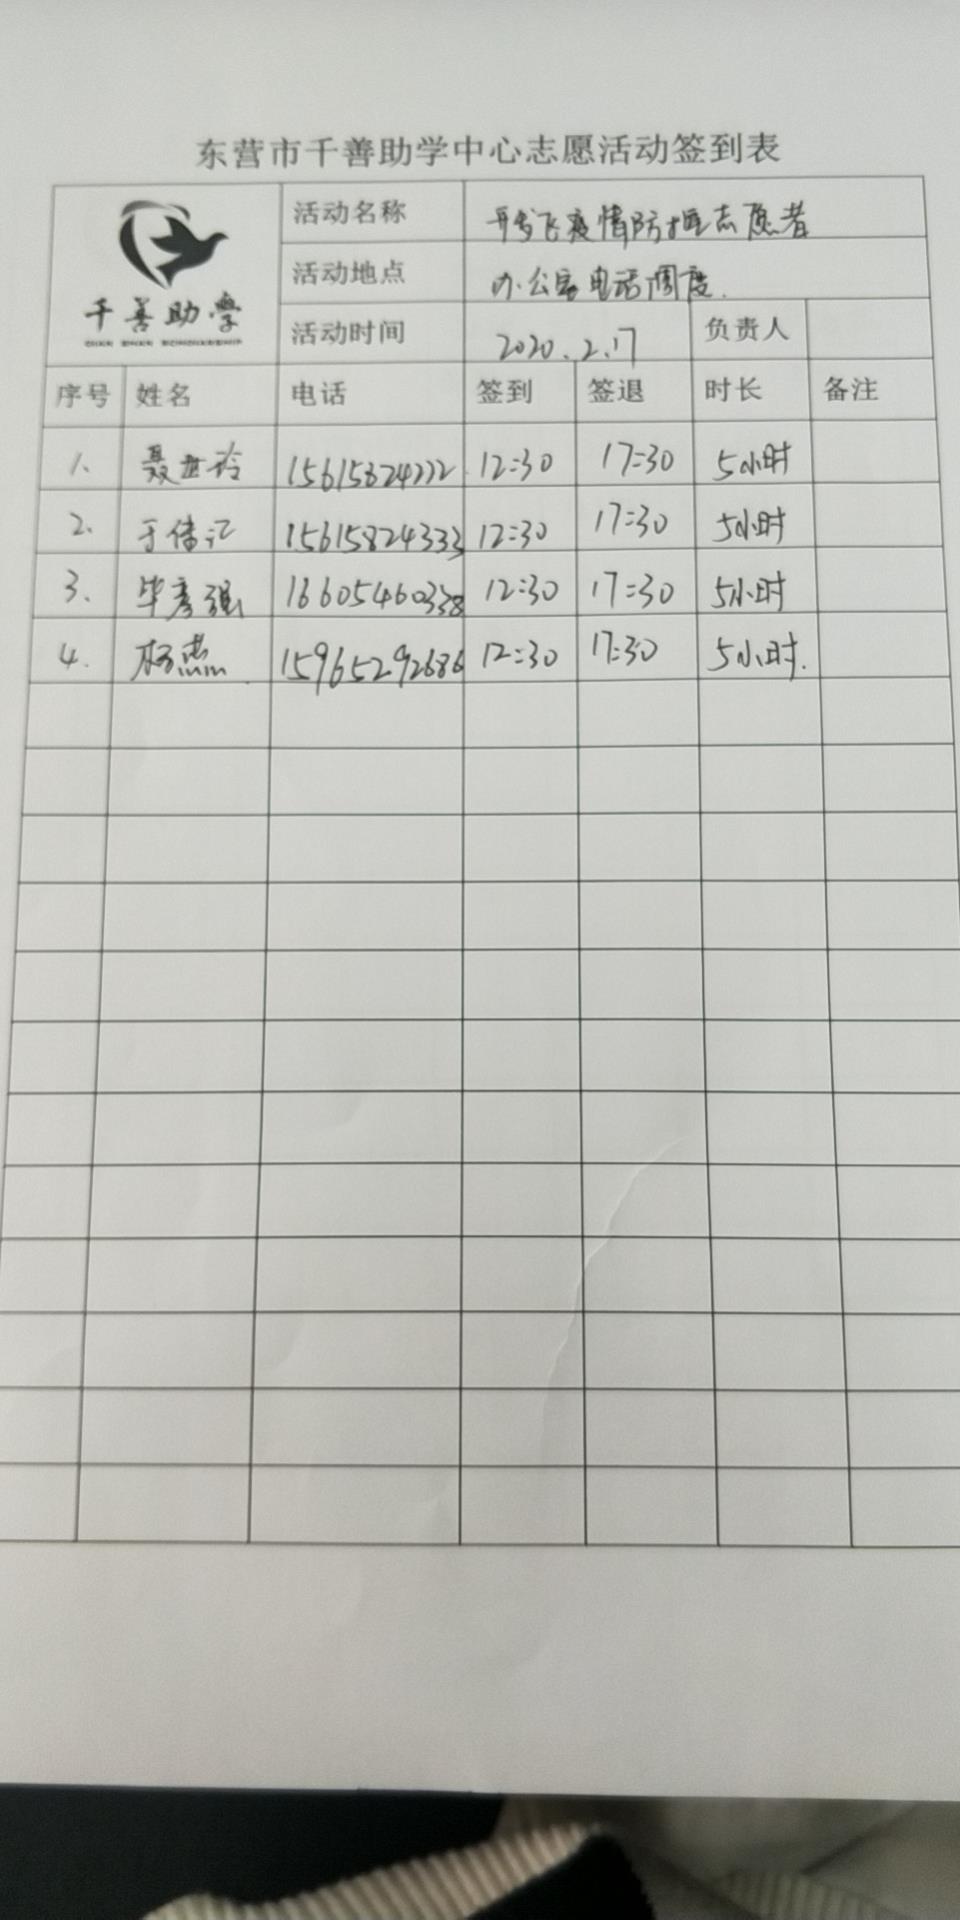 东营市千善助学中心志愿活动签到表
千善助學
QIAN SHAN SCHOLARSHIP
活动名称 疫情防控志愿者
活动地点 办公室电话调度.
活动时间 2020.2.17 负责人
序号 姓名 电话 签到 签退 时长 备注
1、 聂世玲 15615824222 12:30 17:30 5小时
2、 于倩汇 15615824333 12:30 17:30 5小时
3、 毕彦强 16605460338 12:30 17:30 5小时
4. 杨焘 15965292686 12:30 17:30 5小时.